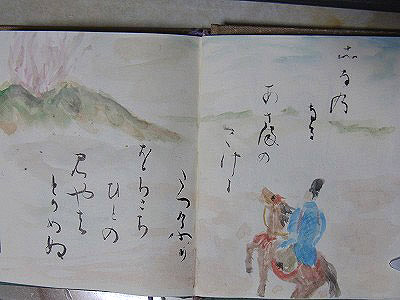 志なの
なる
あさ間の
たけに
たつけふり
をちこち
ひとの
見やは
とかめぬ